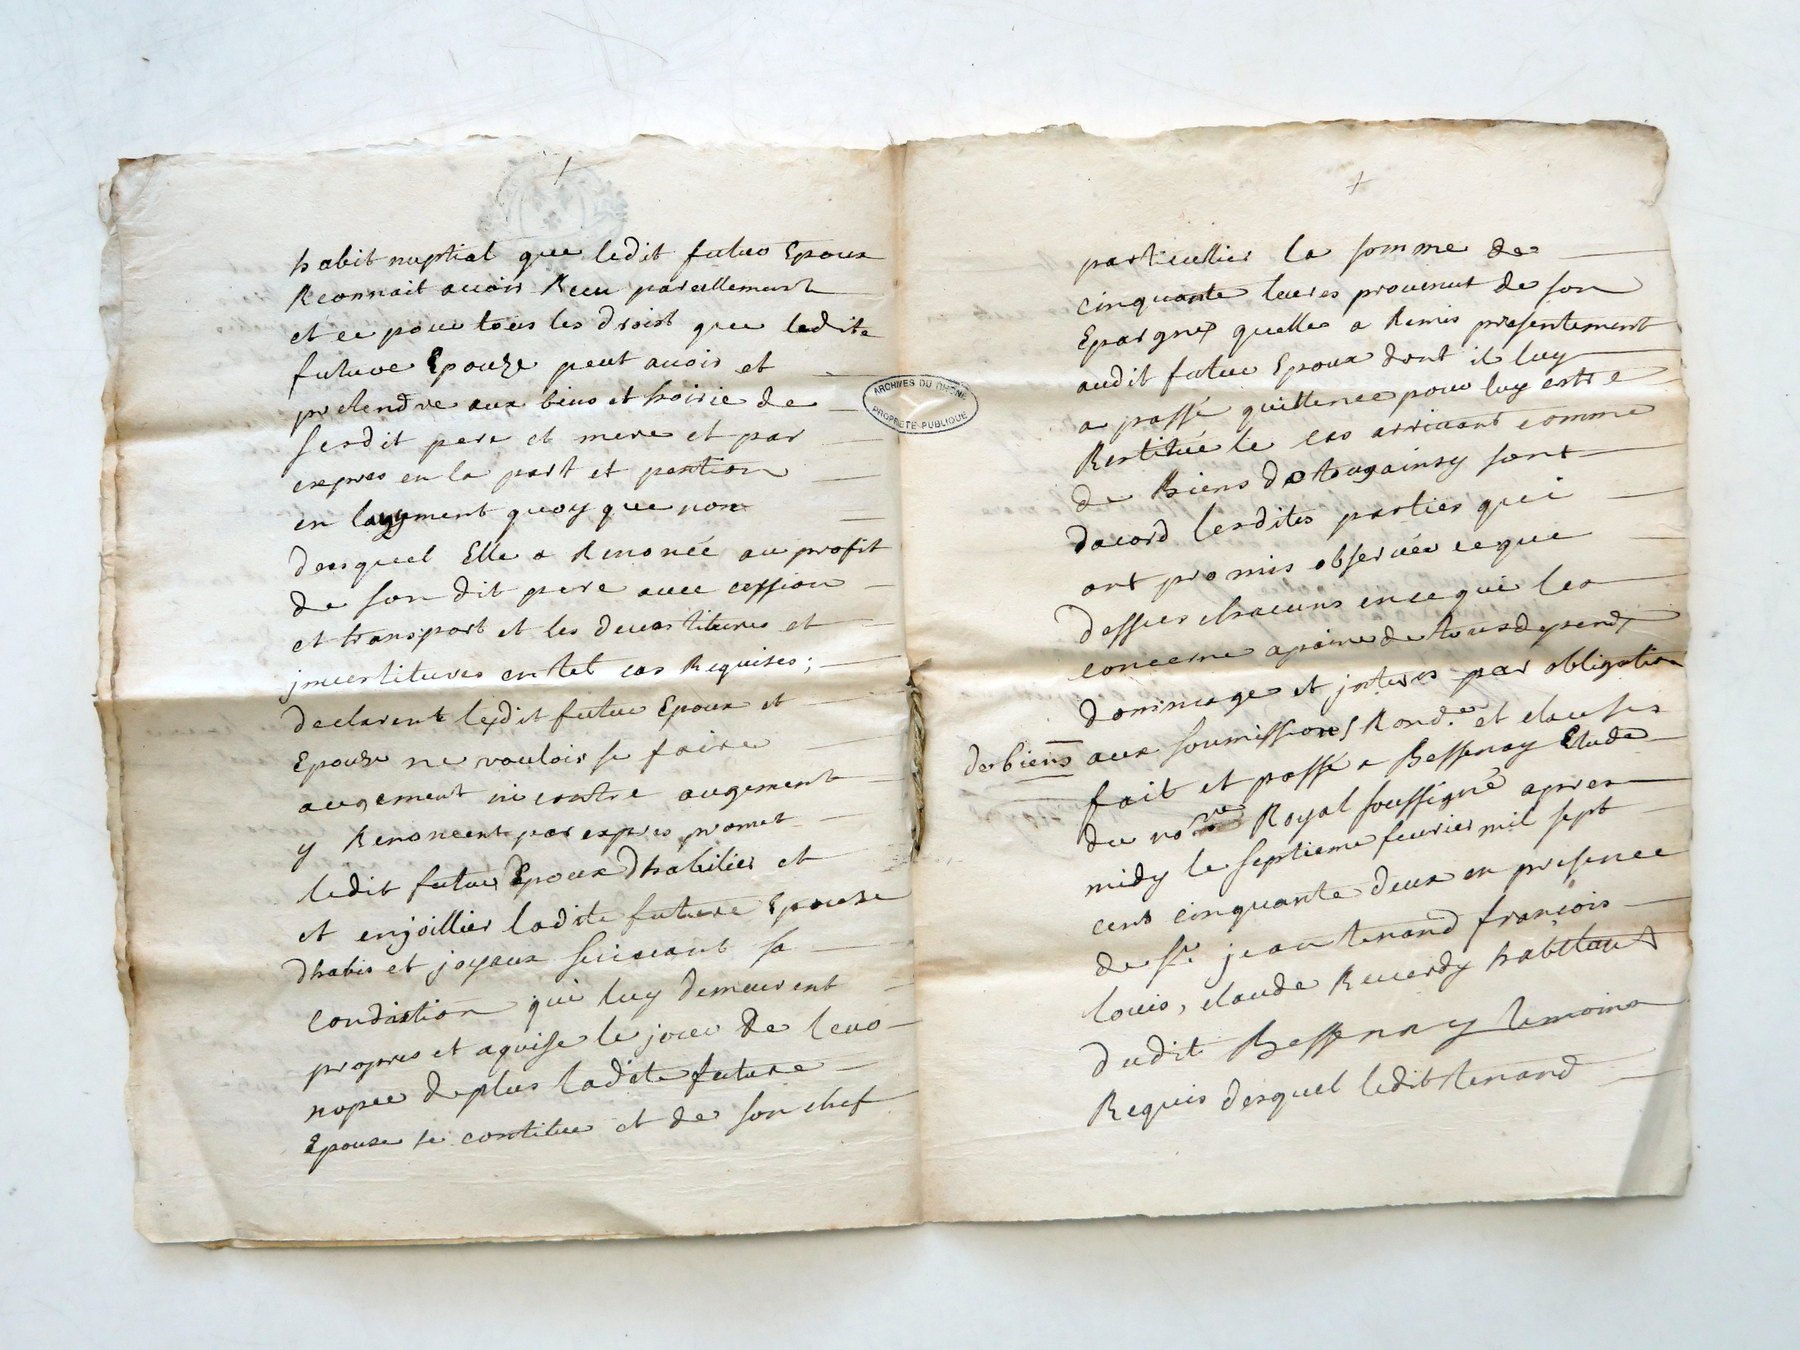 habit nuptial que ledit futur Epoux
Reconnait avoir Receu pareillement
et ce pour tous les droist que ladite
future Epouze peut avoir et
pretendre aux biens et hoirie de
sesdit pere et mere et par
expres en la part et portion
en laugment quoy que non
desquel Elle a Renoncée au profit
de son dit pere avec cession
et transport et les devestitures et
jnvestitures en tel cas Requises;
declarent lesdit futur Epoux et
Epouze ne vouloir se faire
augement ni contre augement
y Renoncent par expres promet
ledit futur Epoux dhabilier et
et enjoillier ladite future Epouse
dhabis et joyaux suivant sa
condiction qui luy demeurent
propres et aquise le jour de leuo
nopce de plus ladite future
Epouse se constitue et de son chef
ARCHIVES DU RHONE
PROPRIETE PUBLIQUE
particullier la somme de
cinquante livres provenut de son
Epargnes quelle a Remis presentement
audit futur Epoux dont il luy
a passé quittence pour luy estre
Restitué le cas arrivant comme
de Biens
dacord lesdites parties qui
ont promis observée ceque
dessus chacuns en ce qui les
concerne a peine de tous depends
dommage et jnteres par obligation
des biens aux soumissions Rond.er et clauses
fait et passé a Bessenay Etude
du no.re Royal soussigné apres
midy le septieme fevrier mil sept
cens cinquante deux en presence
de sr. jean tenand françois
louis, claude Reverdy habitant
dudit Bessenay temoins
Requis desquel ledit tenand